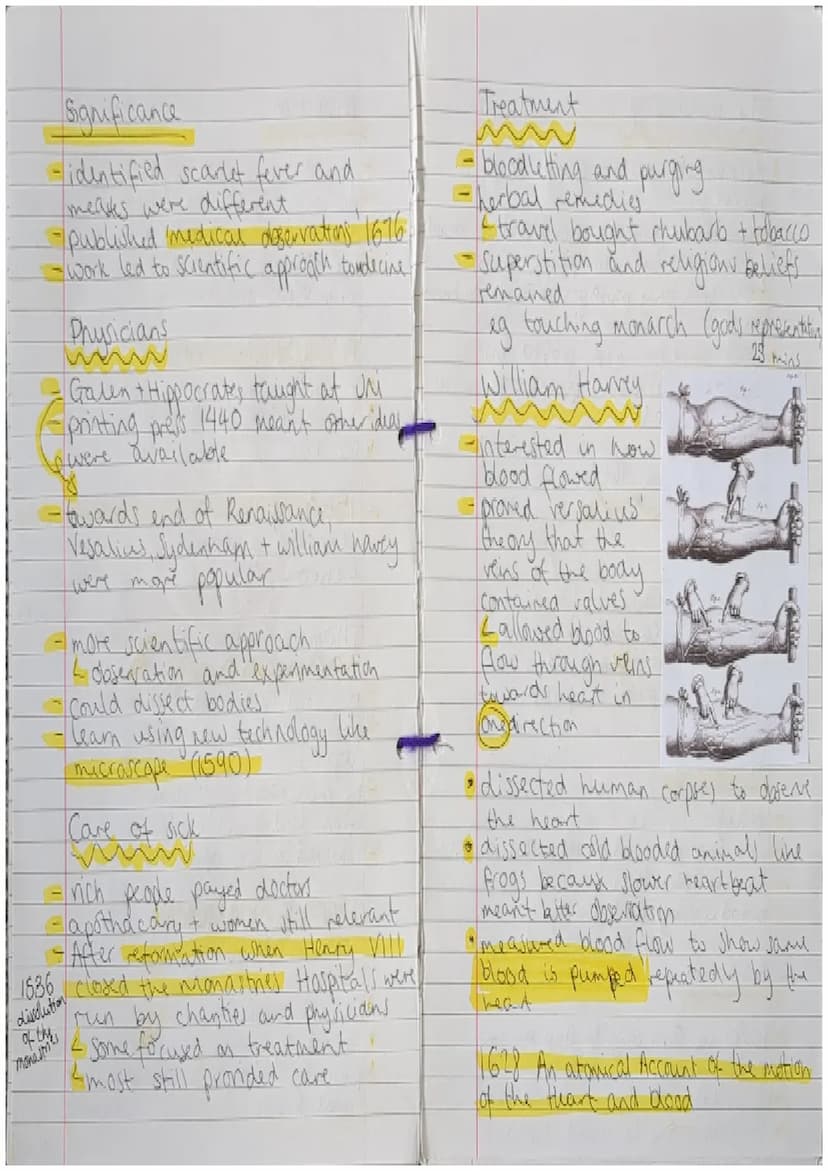 Significance
- identified scarlet fever and
measles were different
- published 'medical observations' 1676
- work led to scientific approach to medicine
Physicians
- Galen + Hippocrates taught at Uni
- printing press 1440 meant other ideas
were available
- towards end of Renaissance,
Vesalius, Sydenham + william harvey
were more popular
- more scientific approach
↳ observation and experimentation
- could dissect bodies
- learn using new technology like
microscope (1590)
Care of sick
- rich people payed doctors
- apothacary + women still relevant
- After reformation when Henry VIII
closed the monastries Hospitals were
run by charities and physicians
↳ some focused on treatment
↳ most still provided care
1536
dissolution
of the
monastries
Treatment
- bloodletting and purging
- herbal remedies
↳ travel bought rhubarb + tobacco
- superstition and religious beliefs
remained
eg touching monarch (gods representative
23 mins
William Harvey
- interested in how
blood flowed
- proved versalius'
theory that the
veins of the body
contained valves
↳ allowed blood to
flow through veins
towards heart in
one direction
• dissected human corpses to observe
the heart
• dissected cold blooded animals like
frogs because slower heartbeat
meant better observation
• measured blood flow to show same
blood is pumped repeatedly by the
heart
1628 An atomical Account of the motion
of the Heart and blood